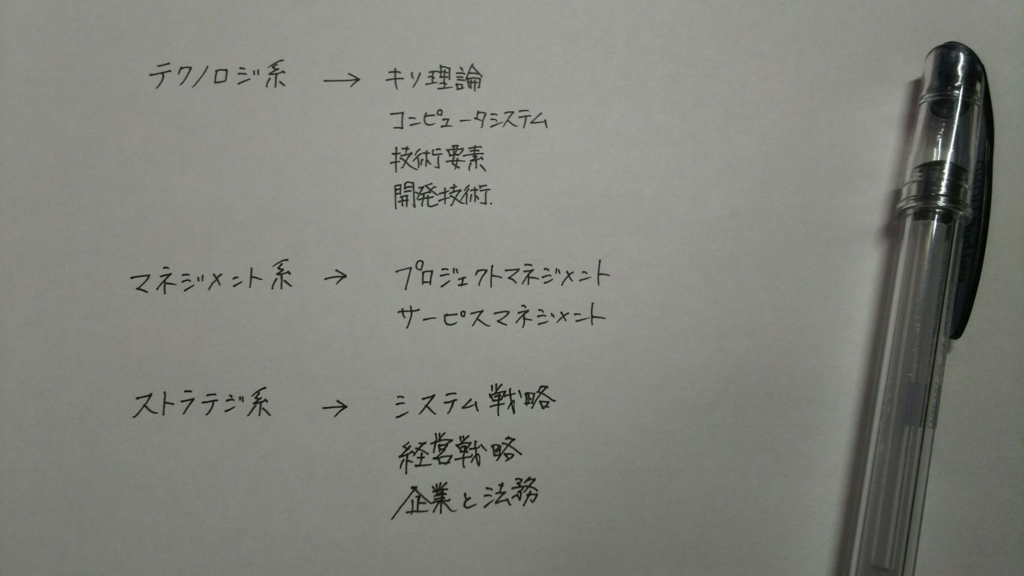 テクノロジ系 → キソ理論
コンピュータシステム
技術要素
開発技術.
マネジメント系 → プロジェクトマネジメント
サービスマネジメント
ストラテジ系 → システム戦略
経営戦略
企業と法務